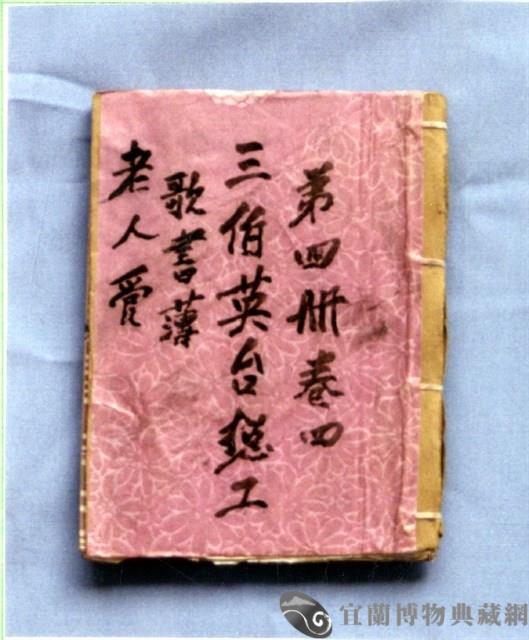 第四册卷四
三伯英台總工
歌書薄
老人愛
宜蘭博物典藏網